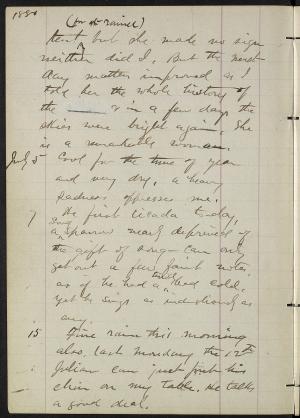 1880
(for it rained)
tent but she made no sign
neither did I. But the next
day matters improved as I
told her the whole history of
the & in a few days the
skies were bright again. She
is a remarkable woman.
July 5 Cool for the time of year
and very dry. a heavy
sadness oppresses me.
7 The first cicada to-day,
Song
a sparrow nearly deprived of
the gift of song - can only
get out a few faint notes,
as if he had a bad cold.
yet he sings as industriously as
any.
15 Fine rain this morning
also last monday the 12th
Julian can just put his
chin on my table. He talks
a good deal.